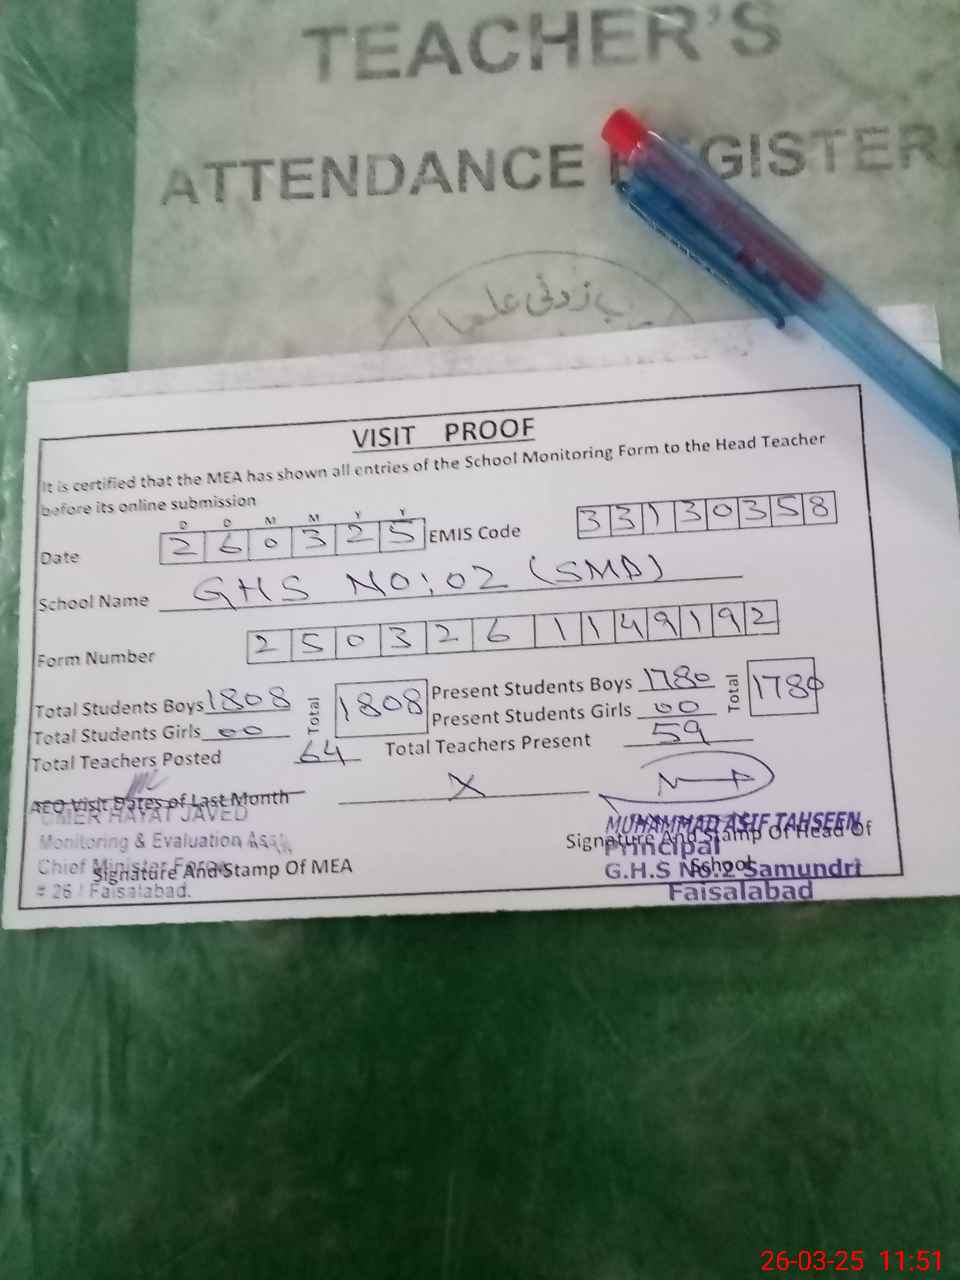 TEACHER'S
ATTENDANCE REGISTER
زدنی علما
VISIT PROOF
It is certified that the MEA has shown all entries of the School Monitoring Form to the Head Teacher
before its online submission
D D M M Y Y
Date 260325 EMIS Code 33130358
School Name GHS NO:02 (SMD)
Form Number 2503261149192
Total Students Boys 1808 Total 1808 Present Students Boys 1780 Total 1780
Total Students Girls 00 Present Students Girls 00
Total Teachers Posted 64 Total Teachers Present 59
AEO Visit Dates of Last Month X
UMER HAYAT JAVED
Monitoring & Evaluation Asst.
Chief Minister
# 26 / Faisalabad.
Signature And Stamp Of MEA
MUHAMMAD ASIF TAHSEEN
Principal
G.H.S No.2 Samundri
Faisalabad
Signature And Stamp Of Head Of
School
26-03-25 11:51